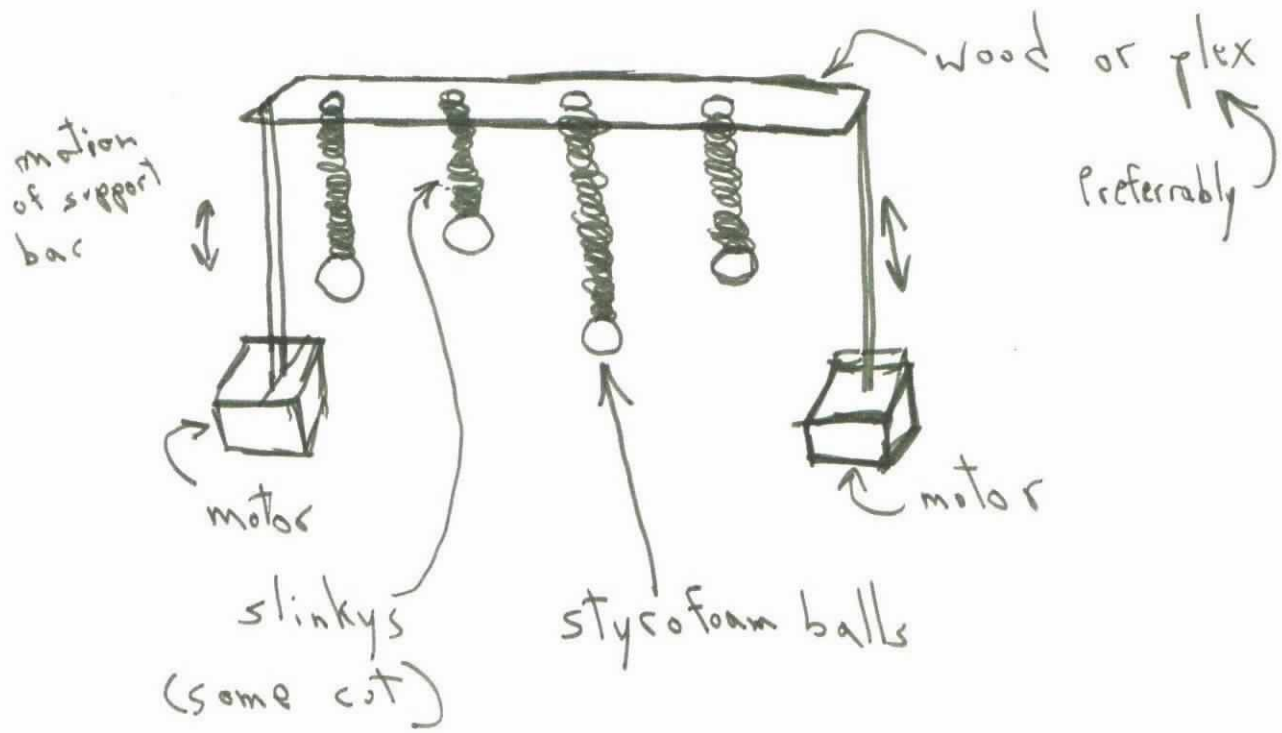 wood or plex
Preferrably
motion
of support
bar
motor
motor
slinkys
(some cut)
styrofoam balls